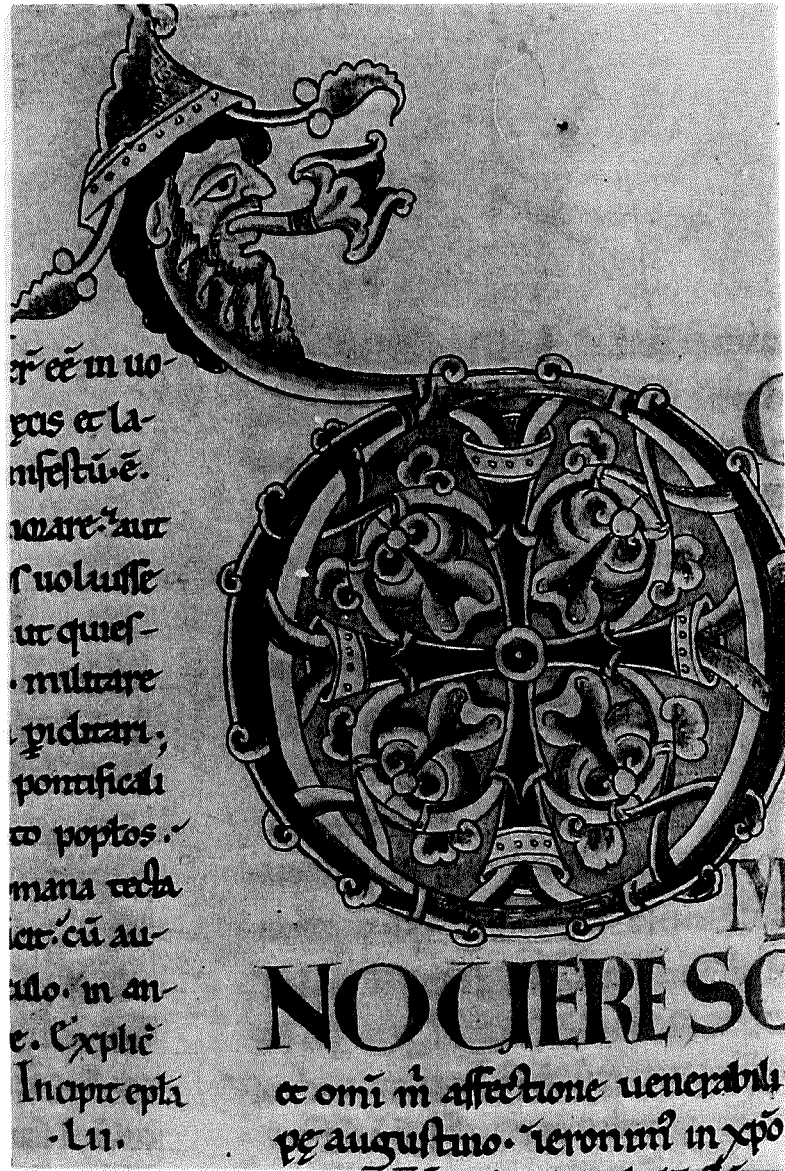 eē in uo-
et la-
nifestū·ē·
aut
uoluisse
ut quies-
· militare
ꝑiclitari;
pontificali
to popłos·
mana tecta
cū au-
in an-
e· Explic̄
Incipit epła
·Lii·
D
M
NO UERE SC
et omī m̄ affectione uenerabili
pę augustino· ieronimꝰ in xp̄o